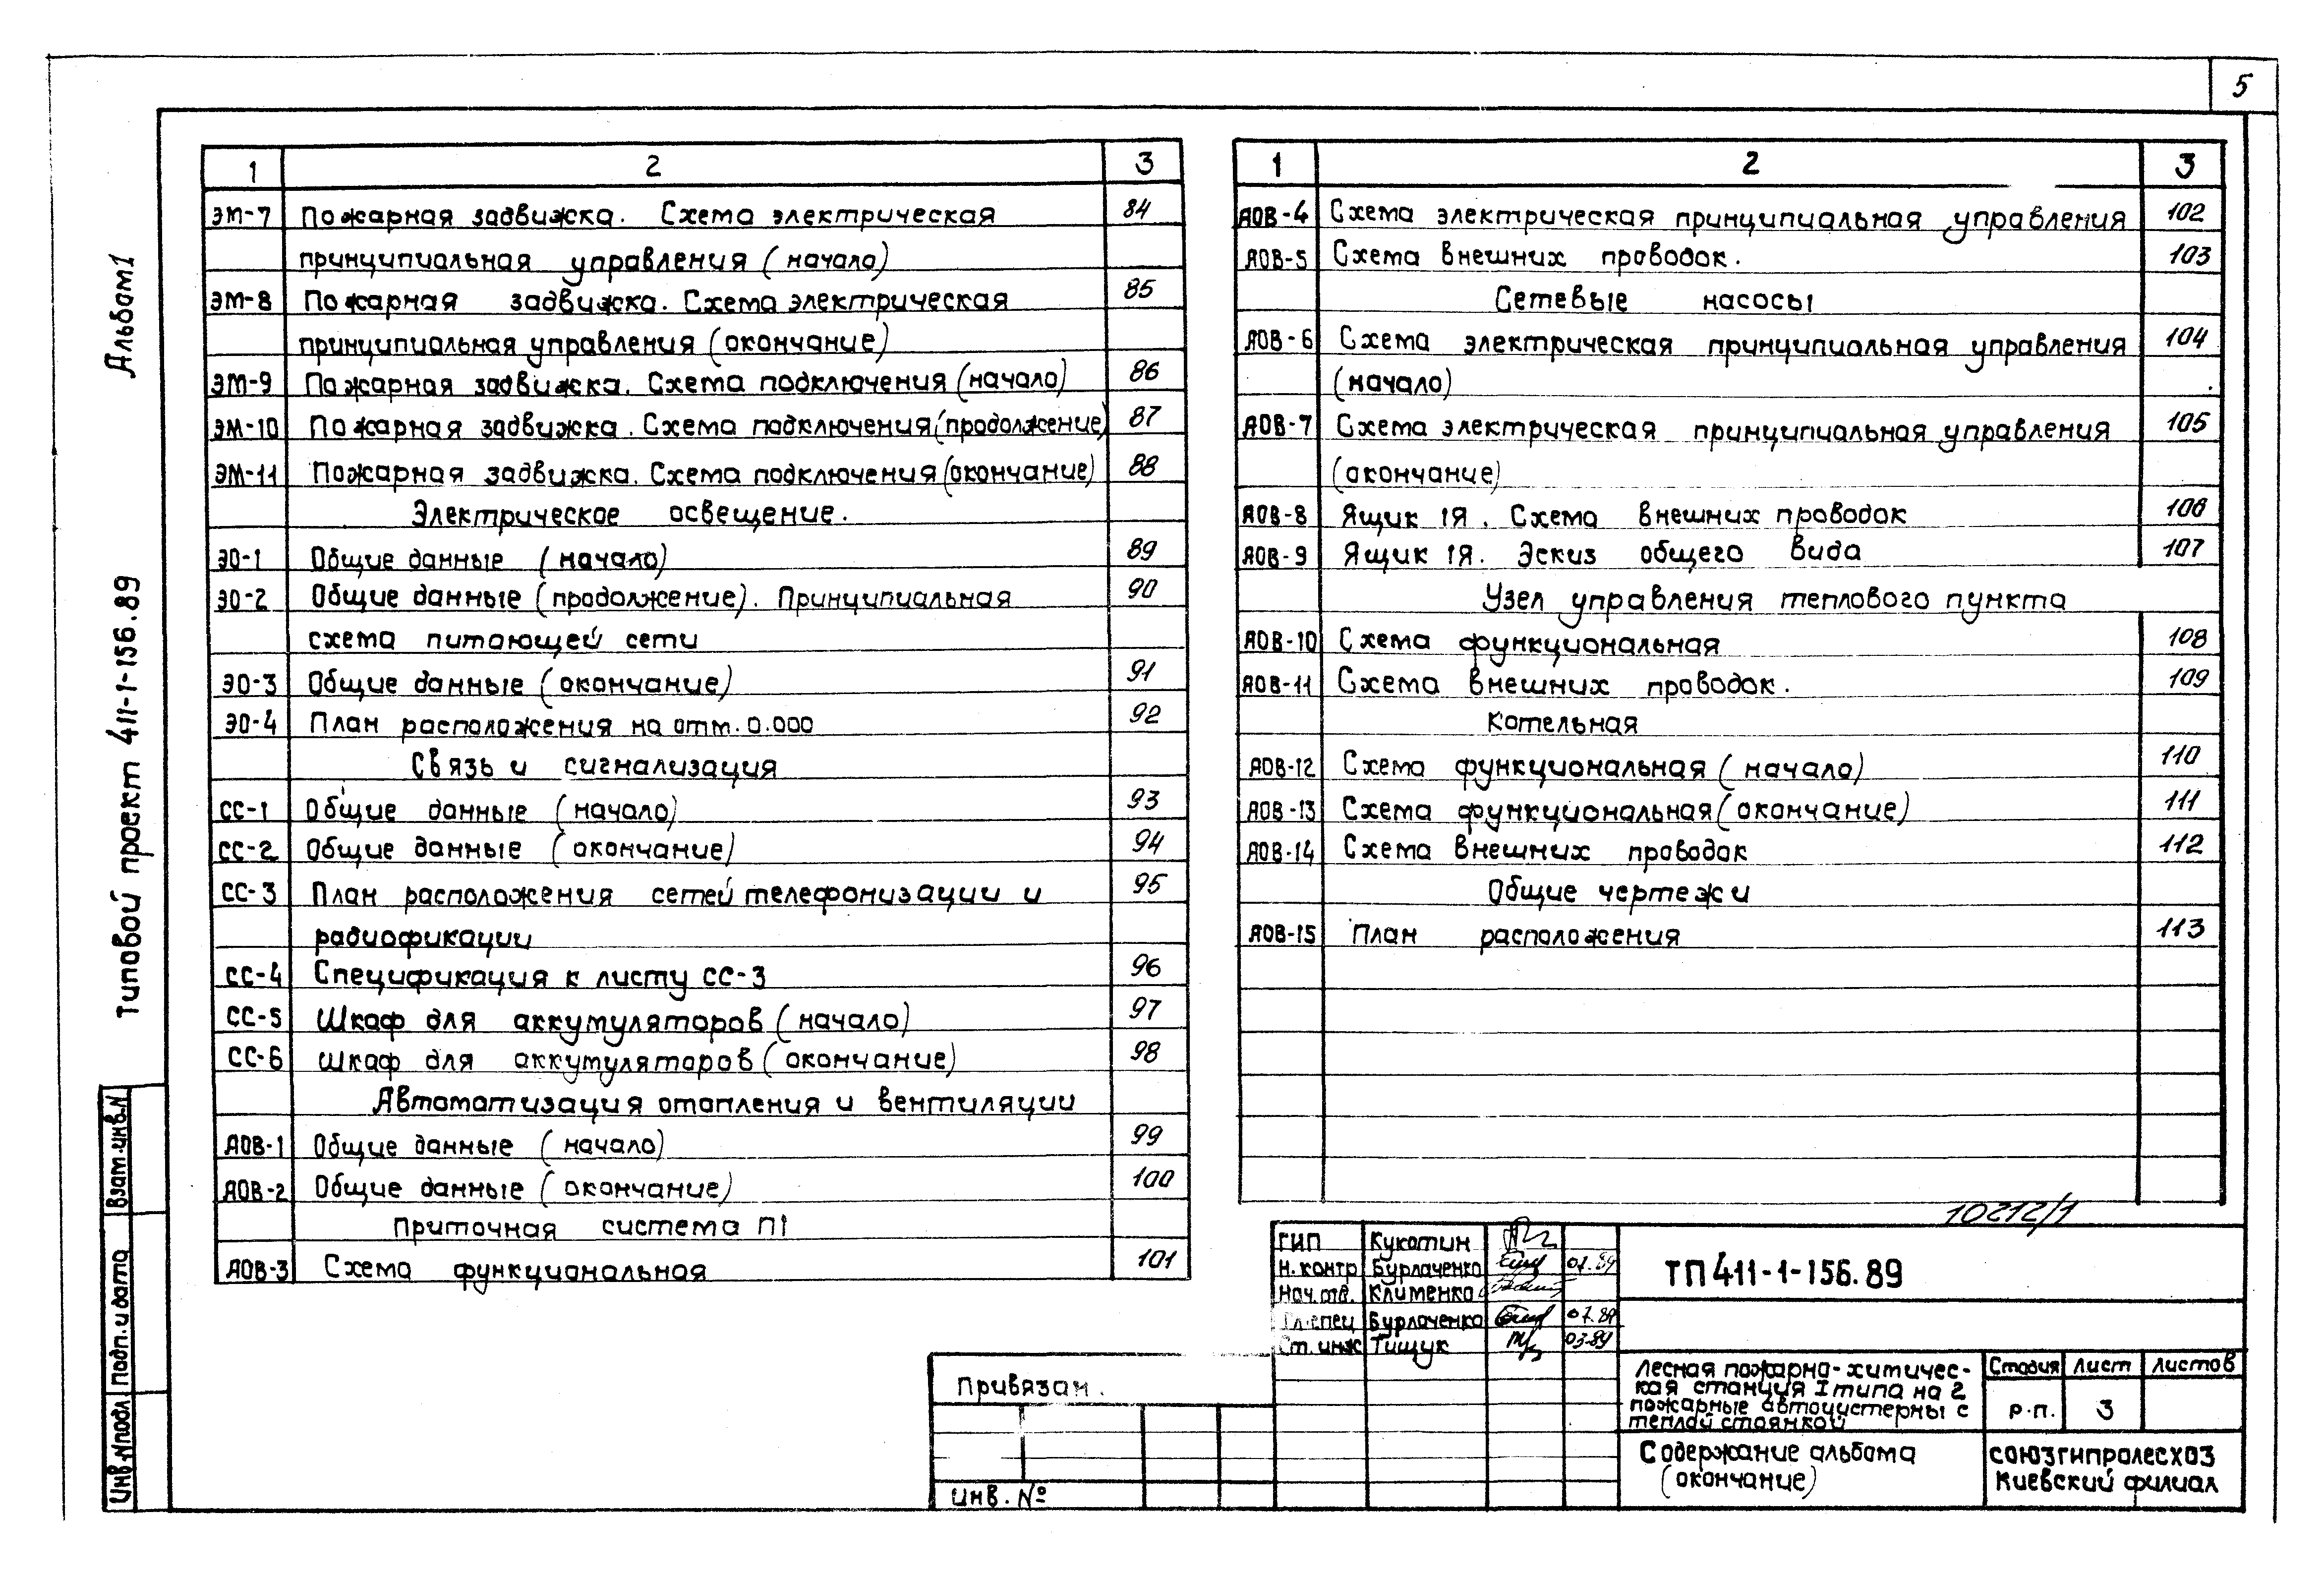 5
Альбом 1
Типовой проект 411-1-156.89
Взам.инв.N
Подп. и дата
Инв.Nподл
1 2 3
ЭМ-7 Пожарная задвижка. Схема электрическая 84
принципиальная управления (начало)
ЭМ-8 Пожарная задвижка. Схема электрическая 85
принципиальная управления (окончание)
ЭМ-9 Пожарная задвижка. Схема подключения (начало) 86
ЭМ-10 Пожарная задвижка. Схема подключения (продолжение) 87
ЭМ-11 Пожарная задвижка. Схема подключения (окончание) 88
Электрическое освещение.
ЭО-1 Общие данные (начало) 89
ЭО-2 Общие данные (продолжение). Принципиальная 90
схема питающей сети
ЭО-3 Общие данные (окончание) 91
ЭО-4 План расположения на отм. 0.000 92
Связь и сигнализация
СС-1 Общие данные (начало) 93
СС-2 Общие данные (окончание) 94
СС-3 План расположения сетей телефонизации и 95
радиофикации
СС-4 Спецификация к листу СС-3 96
СС-5 Шкаф для аккумуляторов (начало) 97
СС-6 Шкаф для аккумуляторов (окончание) 98
Автоматизация отопления и вентиляции
АОВ-1 Общие данные (начало) 99
АОВ-2 Общие данные (окончание) 100
Приточная система П1
АОВ-3 Схема функциональная 101
1 2 3
АОВ-4 Схема электрическая принципиальная управления 102
АОВ-5 Схема внешних проводок. 103
Сетевые насосы
АОВ-6 Схема электрическая принципиальная управления 104
(начало)
АОВ-7 Схема электрическая принципиальная управления 105
(окончание)
АОВ-8 Ящик 1Я. Схема внешних проводок 106
АОВ-9 Ящик 1Я. Эскиз общего вида 107
Узел управления теплового пункта
АОВ-10 Схема функциональная 108
АОВ-11 Схема внешних проводок. 109
Котельная
АОВ-12 Схема функциональная (начало) 110
АОВ-13 Схема функциональная (окончание) 111
АОВ-14 Схема внешних проводок 112
Общие чертежи
АОВ-15 План расположения 113
10212/1
ГИП Кукотин
Н.контр Бурлаченко 07.89
Нач.отв. Клименко
Гл.спец Бурлаченко 07.89
Ст.инж Тищук 03.89
Привязан.
Инв. №
ТП 411-1-156.89
Лесная пожарно-химичес-
кая станция I типа на 2
пожарные автоцистерны с
теплой стоянкой
Стадия Лист Листов
р.п. 3
Содержание альбома
(окончание)
СОЮЗГИПРОЛЕСХОЗ
Киевский филиал